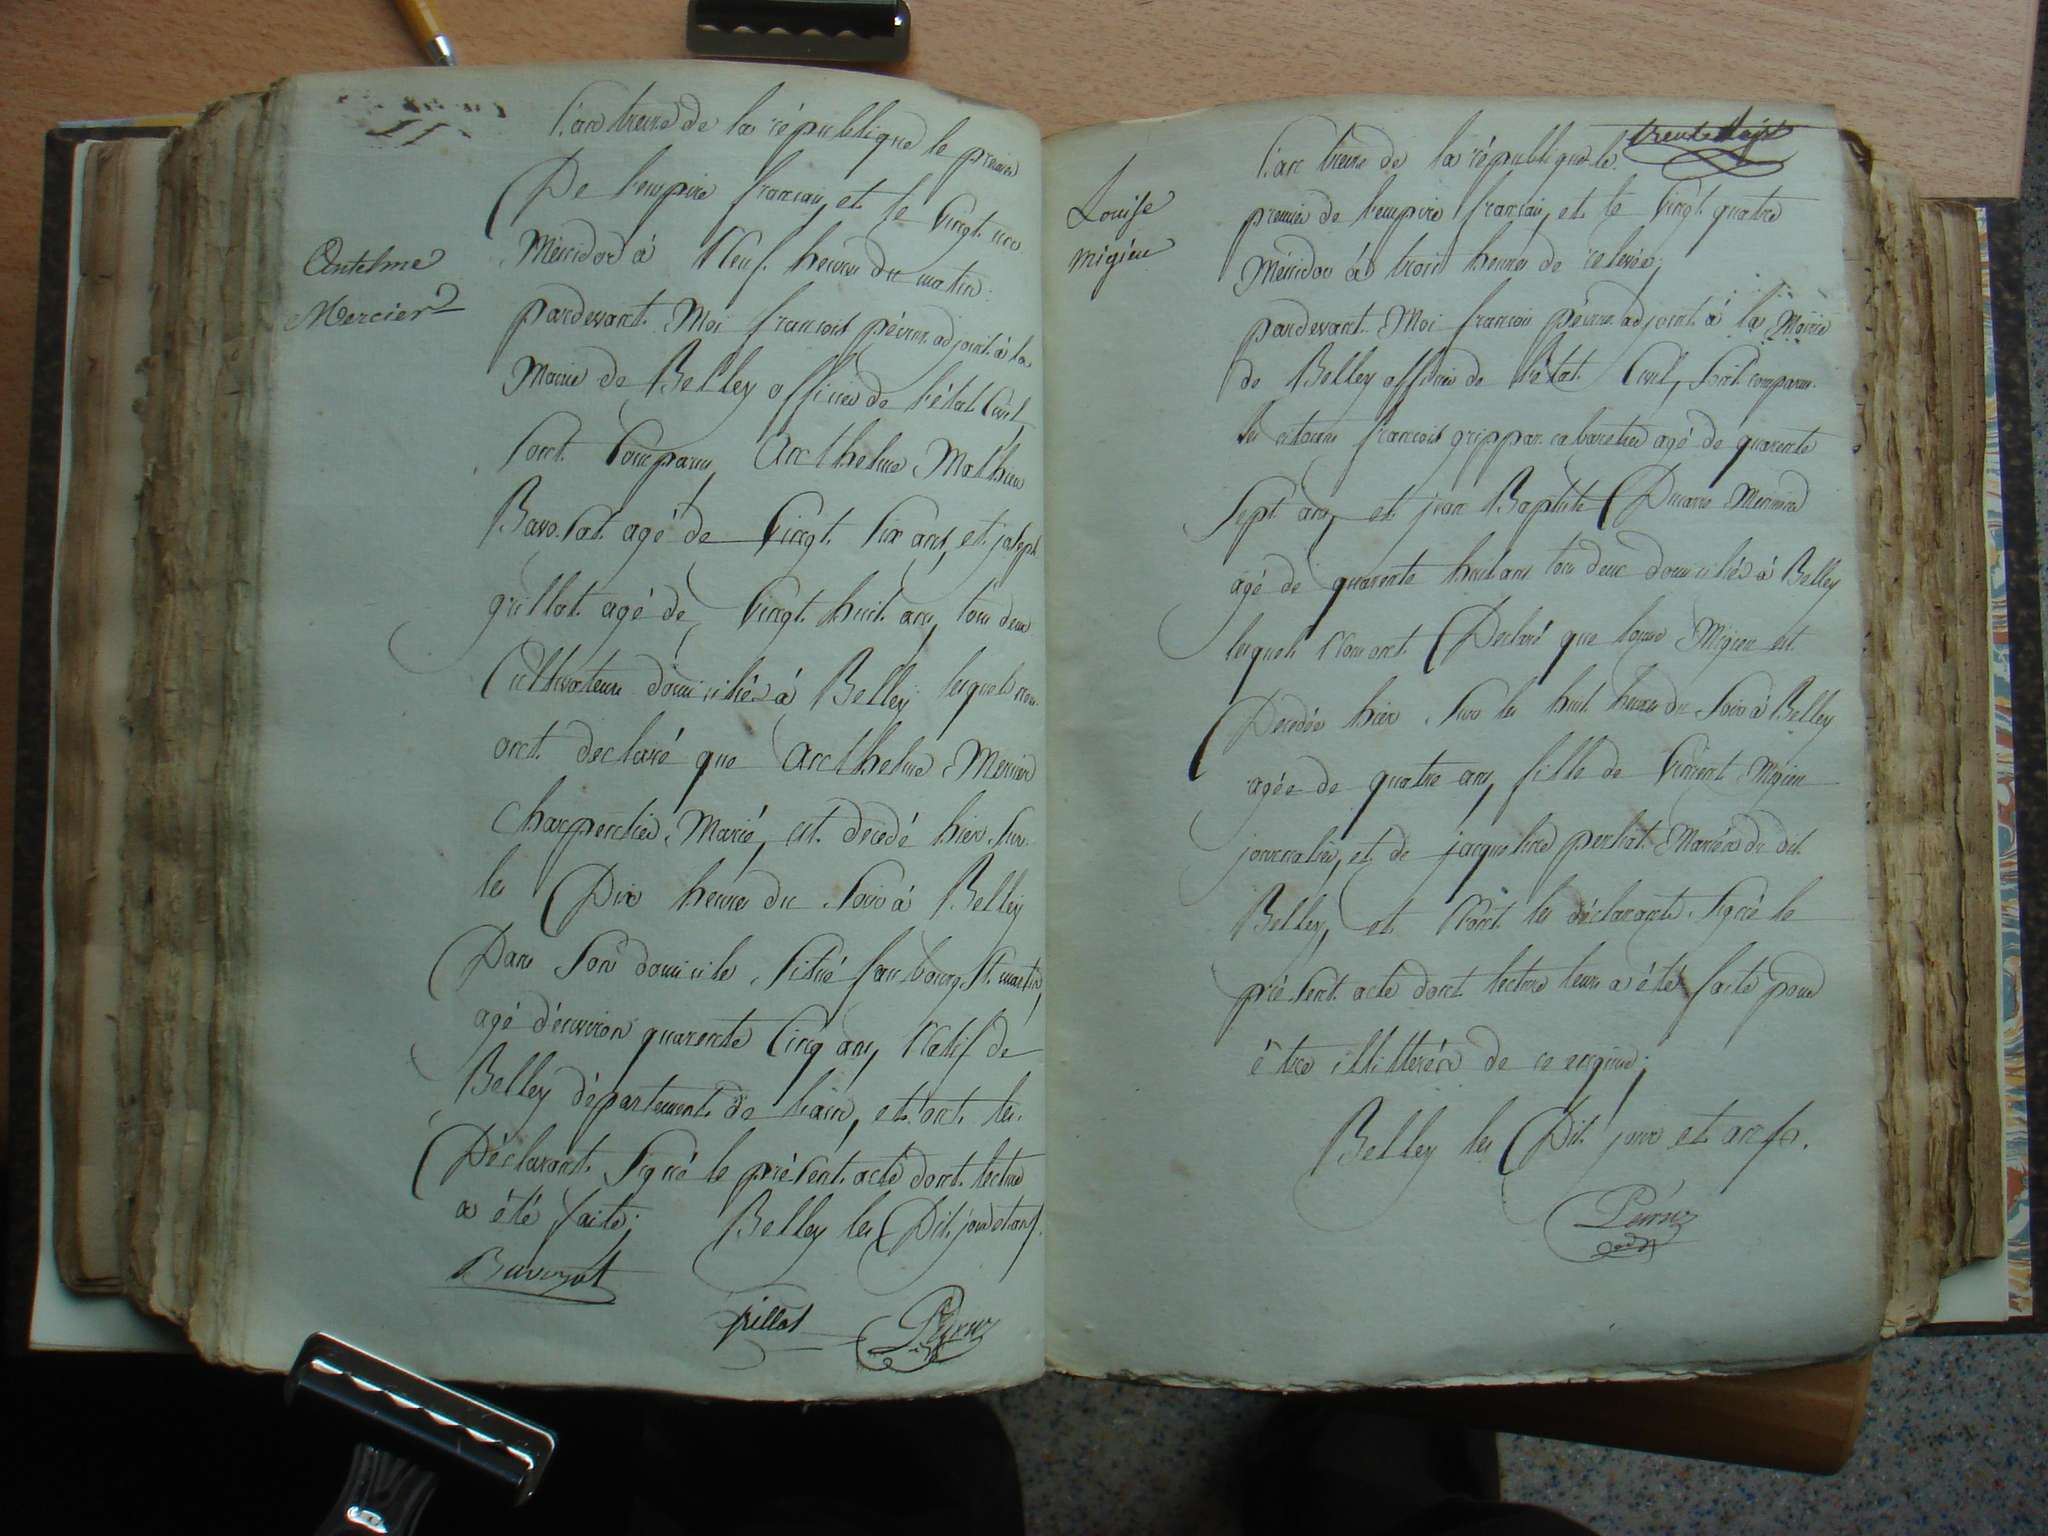 Antelme
Mercier
L'an treize de la république le premier
De l'empire francais, et le Vingt un
Méssidor à Neuf heures du matin;
pardevant Moi francois péirux adjoint à la
Mairie de Belley officier de l'état Civil
Sont Comparus, Anthelme Mathieu
age de Vingt Six ans, et joseph
grillot agé de Vingt huit ans, tous deux
Cultivateurs domiciliés à Belley lesquels nous
ont declaré que Anthelme Mercier
Charpentier Marié, est decedé hier Sur
les Dix heures du Soir à Belley
Dans Son domicile Situé faubourg St. martin,
agé d'environ quarente Cinq ans, Natif de
Belley département de l'ain, et ont les
Déclarants Signé le présent acte dont lecture
a été faite; Belley les Dits jour et an
grillot
Louise
migieu
trente Sept
L'an treize de la république le
premier de l'empire francais, et le Vingt quatre
Méssidor à trois heures de relevée;
pardevant Moi francois péirux adjoint à la Mairie
de Belley officier de l'état Civil, Sont comparus
les citoiens francois grippar cabaretier agé de quarente
Sept ans, et jean Baptiste
agé de quarente huit ans tous deux domiciliés à Belley
lesquels Nous ont Declaré que louise Migieu est
Decedée hier Sur les huit heures du Soir à Belley
agée de quatre ans, fille de Vincent Migieu
journalier, et de jacqueline Mariés du dit
Belley, et N'ont les déclarants Signé le
présent acte dont lecture leur a été faite pour
être illitterés de ce requis;
Belley les Dit jour et an